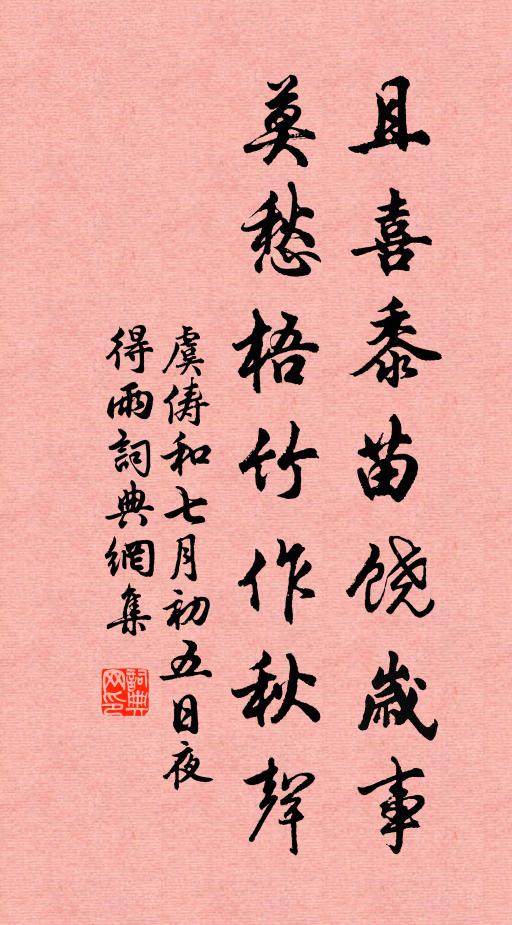 且喜黍苗饶歲事
莫愁梧竹作秋聲
虞俦和七月初五日夜
得雨詞典網集
詞典网印